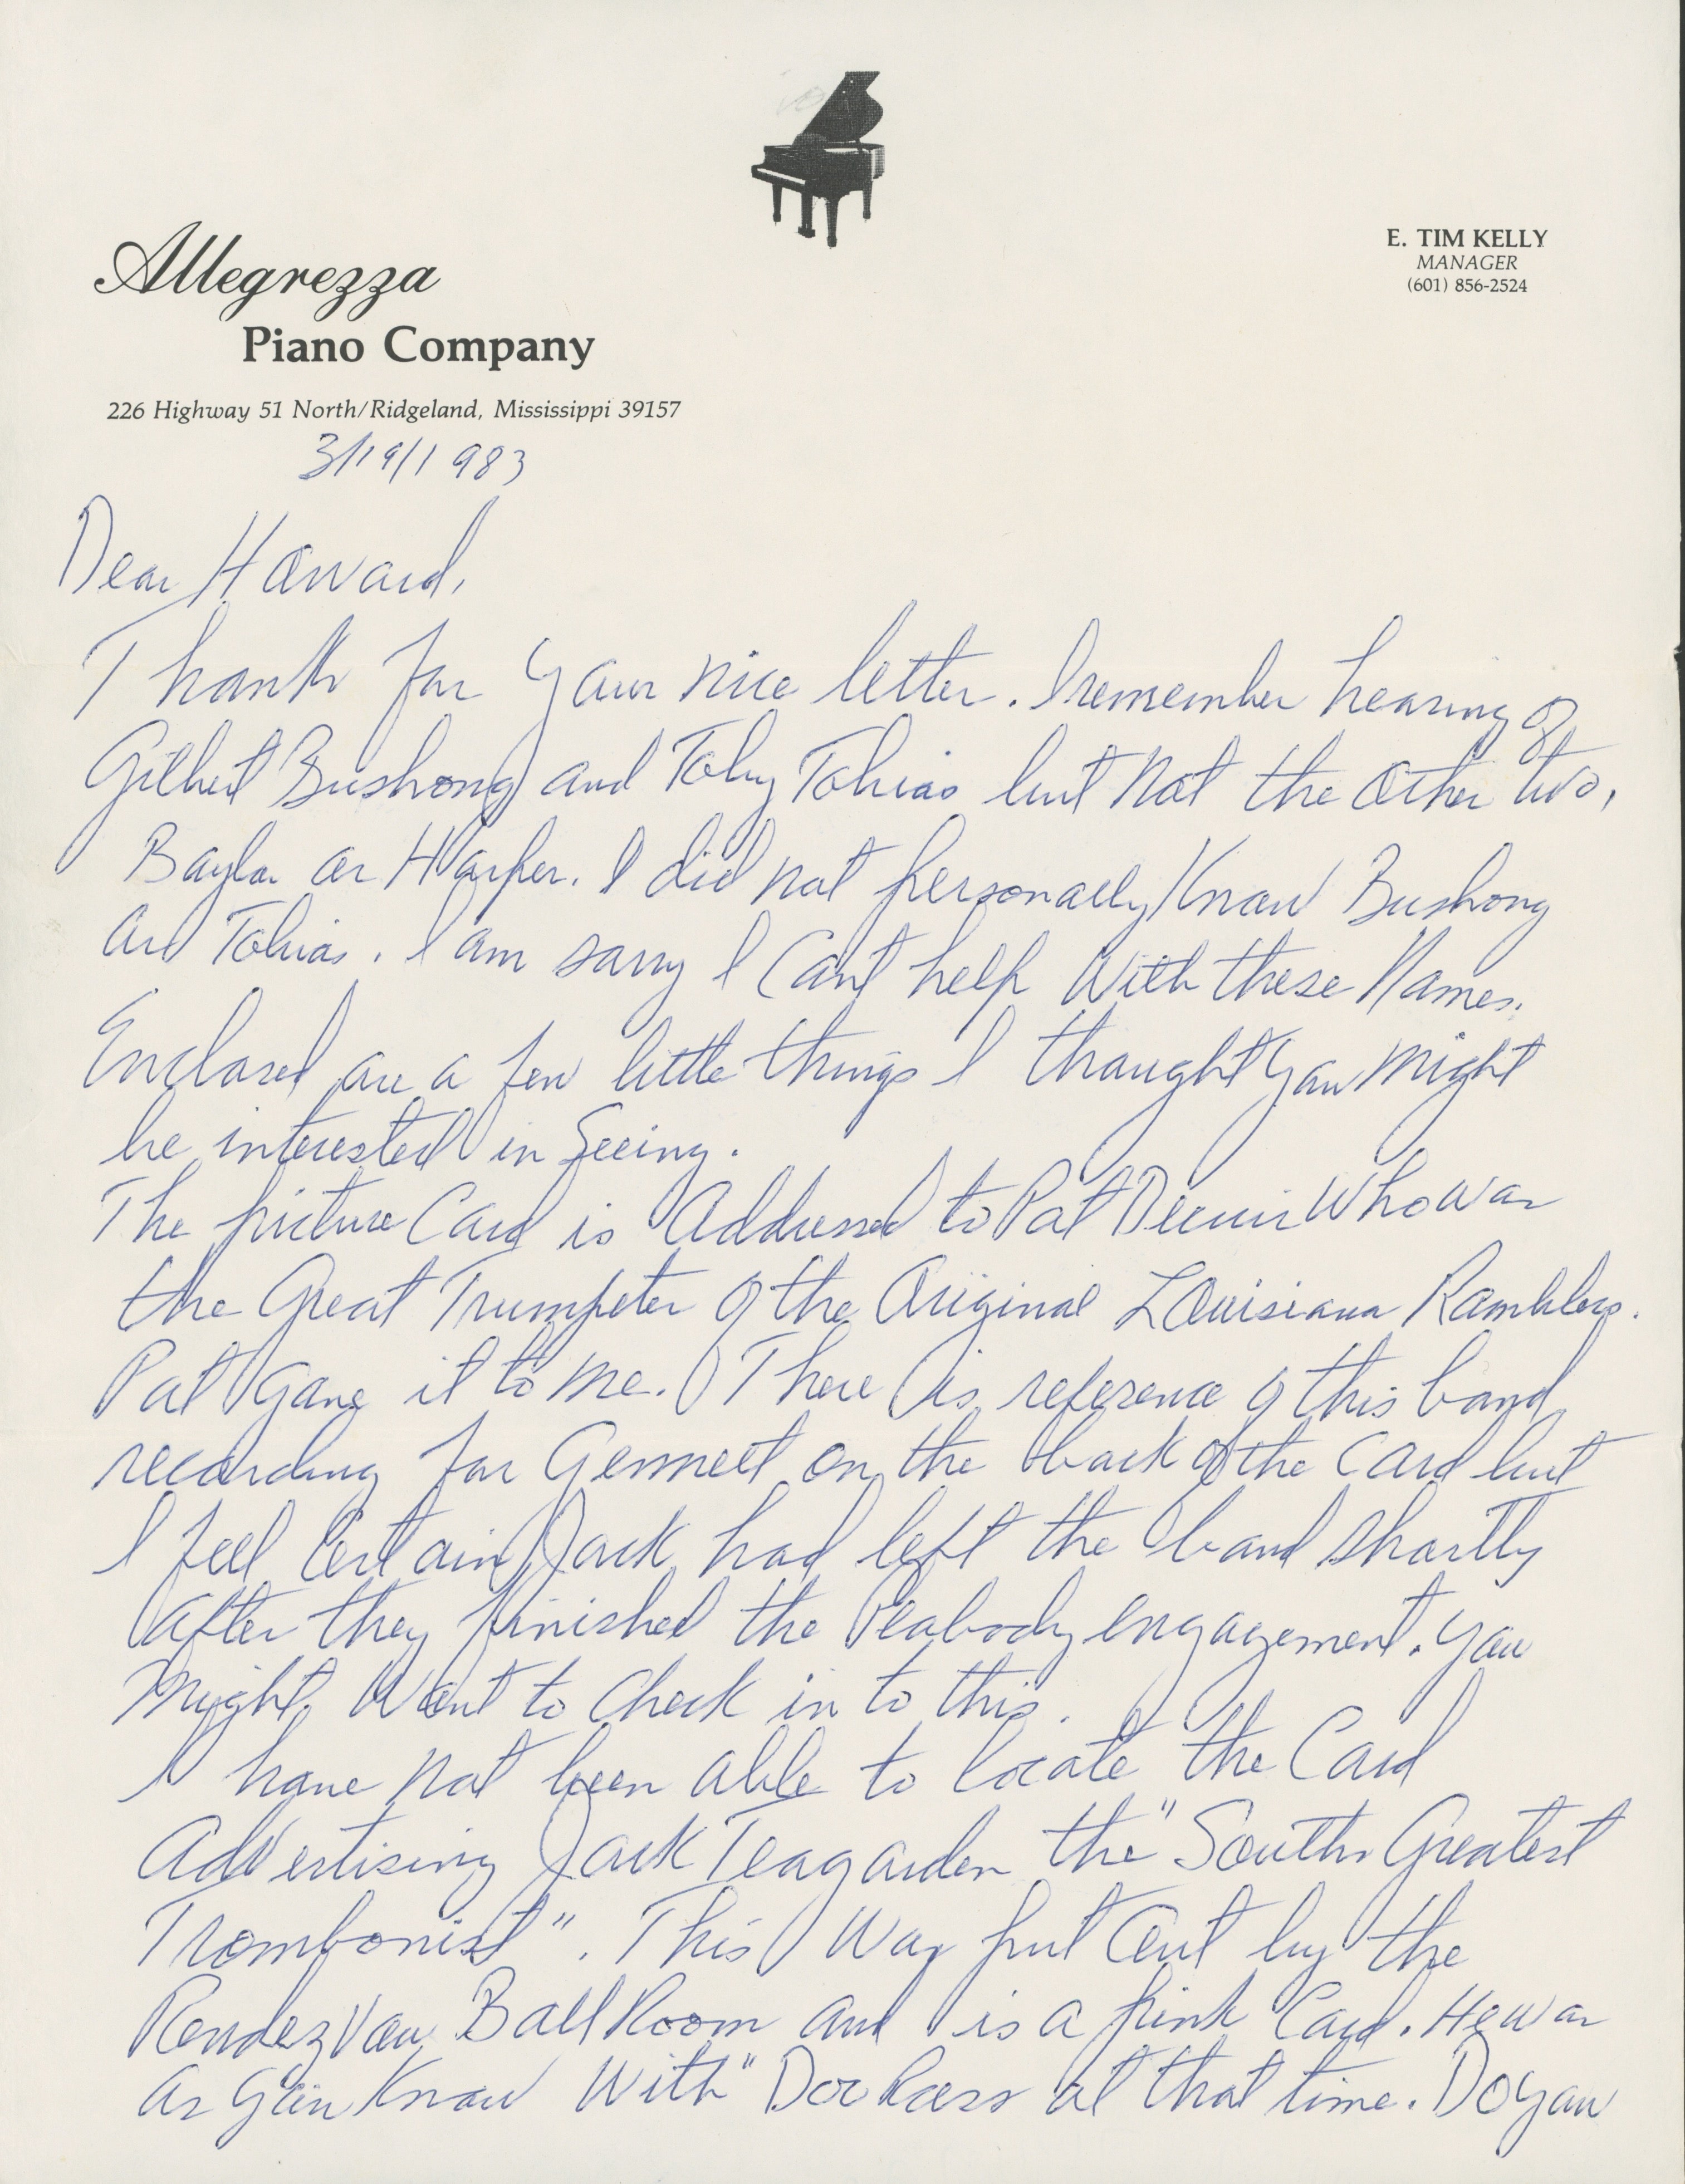 Allegrezza
Piano Company
226 Highway 51 North/Ridgeland, Mississippi 39157
E. TIM KELLY
MANAGER
(601) 856-2524
3/19/1983
Dear Howard,
Thank for your nice letter. I remember hearing of
Gilbert Bushong and Toby Tobias but not the other two,
Baylor or Harper. I did not personally Know Bushong
and Tobias. I am sorry I Can't help With these Names.
Enclosed are a few little things I thought you Might
be interested in Seeing.
The picture Card is Addressed to Pat Who was
the Great Trumpeter of the Original Louisiana Ramblers.
Pat gave it to me. There is reference of this band
recording for Gennett on the back of the Card but
I feel Certain Jack had left the band shortly
after they finished the Peabody engagement. You
Might Want to Check in to this.
I have not been able to locate the Card
Advertising Jack Teagarden the "South's Greatest
Trombonist". This Was put Out by the
RendezVou BallRoom and is a pink Card. He was
as you Know With "Doc Ross at that time. Do you